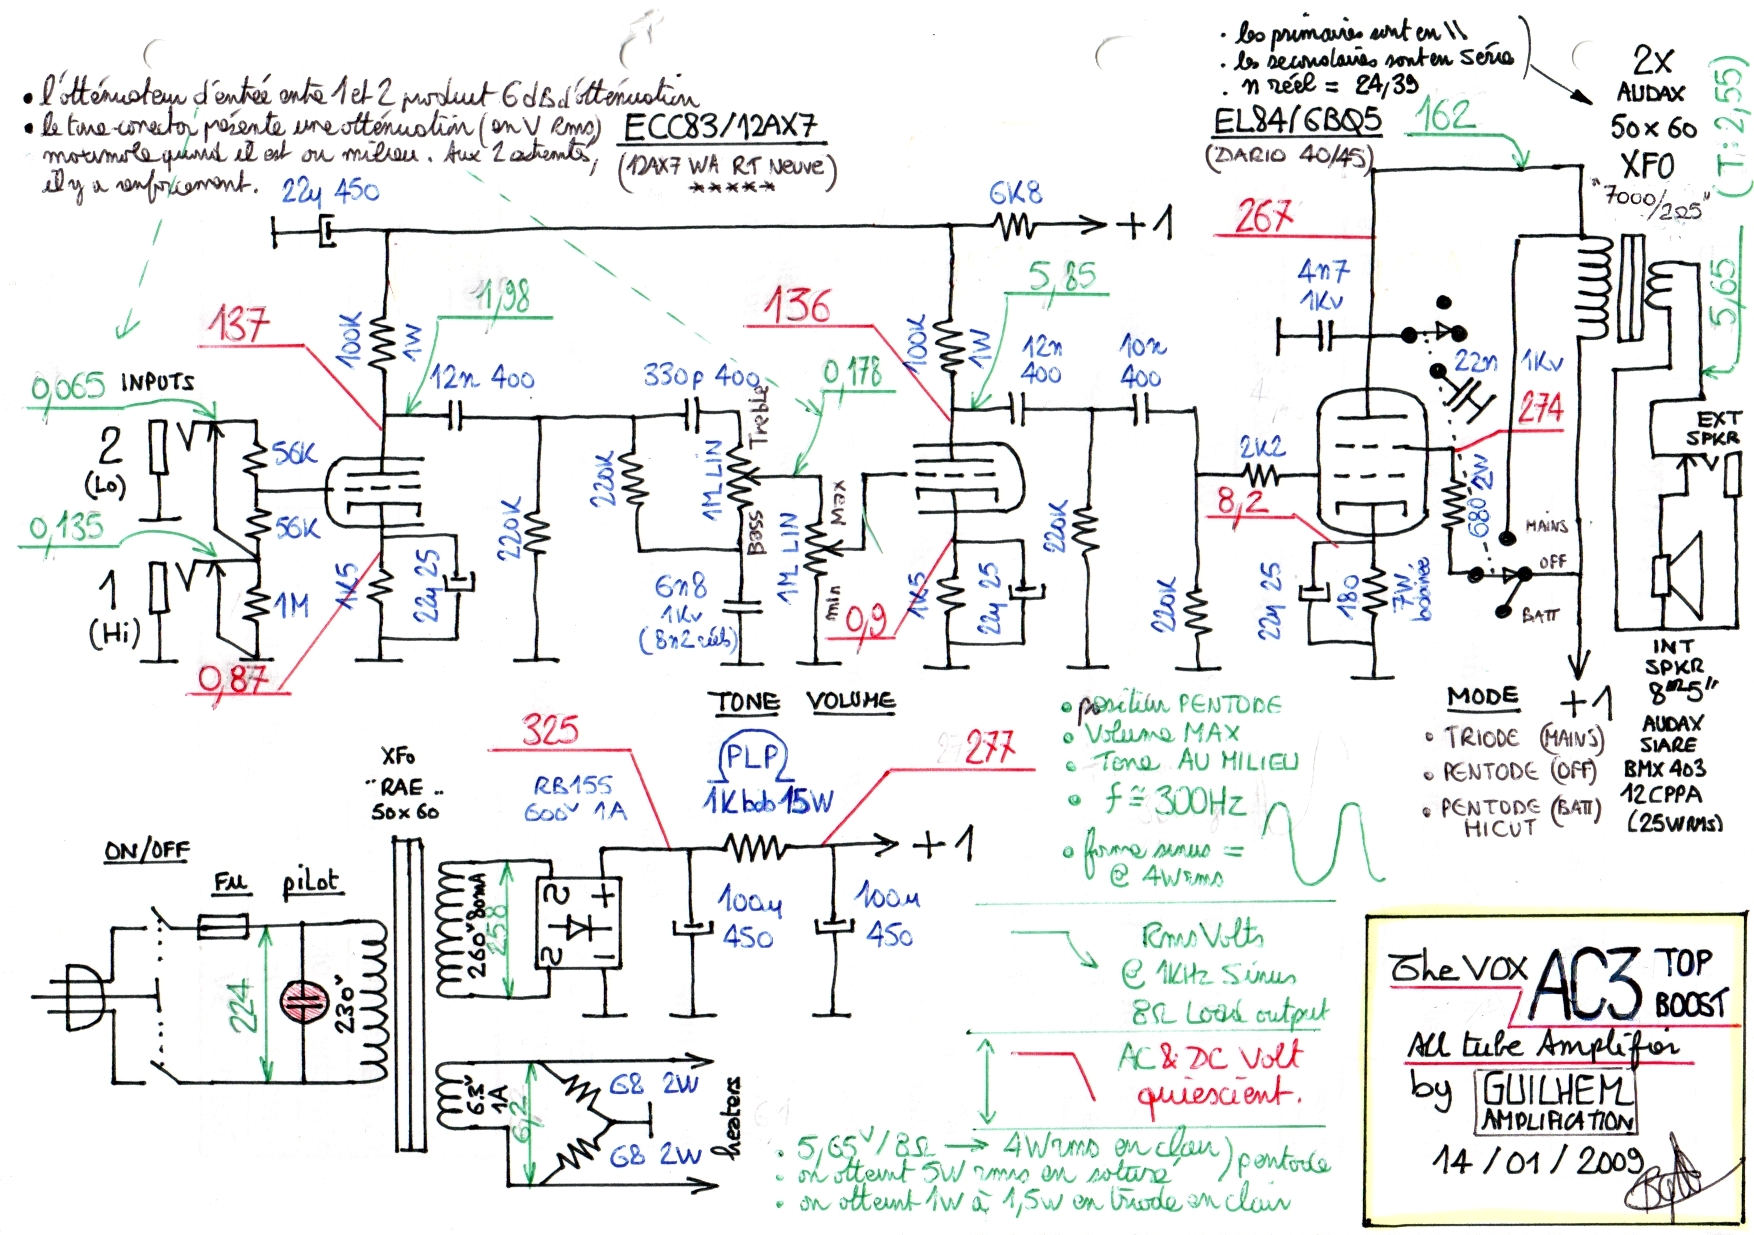 • l'atténuateur d'entrée entre 1 et 2 produit 6 dB d'atténuation
• le tone corrector présente une atténuation (en V Rms)
maximale quand il est au milieu. Aux 2 extremités,
il y a renforcement.
ECC83/12AX7
(12AX7 WA RT Neuve)
*****
• les primaires sont en \\
• les secondaires sont en série
• n réel = 24,39
EL84/6BQ5
(DARIO 40/45)
162
2x
AUDAX
50x60
XFO
"7000/2Ω5"
(Ti: 2,55)
5,65
22µ 450
6K8
+1
267
4n7
1Kv
137
100K
1W
1,98
136
100K
1W
5,85
12n 400
330p 400
0,178
12n
400
10n
400
22n 1Kv
274
0,065
INPUTS
2
(Lo)
56K
0,135
56K
1
(Hi)
1M
1K5
22µ 25
0,87
220K
220K
1M LIN
Treble
Bass
6n8
1Kv
(8n2 réels)
1M LIN
Max
min
0,9
1K5
22µ 25
220K
220K
2K2
8,2
22µ 25
180
7W
bobinée
680 2W
MAINS
OFF
BATT
EXT
SPKR
TONE
VOLUME
+1
INT
SPKR
8Ω 5"
AUDAX
SIARE
BMX 403
12CPPA
(25WRMS)
MODE
• TRIODE (MAINS)
• PENTODE (OFF)
• PENTODE (BATT)
HICUT
325
PLP
1K bob 15W
277
+1
RB155
600V 1A
XFo
"RAE"
50x60
ON/OFF
Fu
pilot
224
230V
260V 80mA
258
2
2
+
100µ
450
100µ
450
6.3V
1A
6,2
68 2W
68 2W
heaters
• position PENTODE
• Volume MAX
• Tone AU MILIEU
• f ≅ 300Hz
• forme sinus =
@ 4Wrms
Rms Volts
@ 1KHz Sinus
8Ω Load output
AC & DC Volt
quiescient.
• 5,65V/8Ω → 4Wrms en clair
• on atteint 5W rms en saturé
) pentode
• on atteint 1W à 1,5W en triode en clair
The VOX AC3 TOP
BOOST
All tube Amplifier
by GUILHEM
AMPLIFICATION
14/01/2009